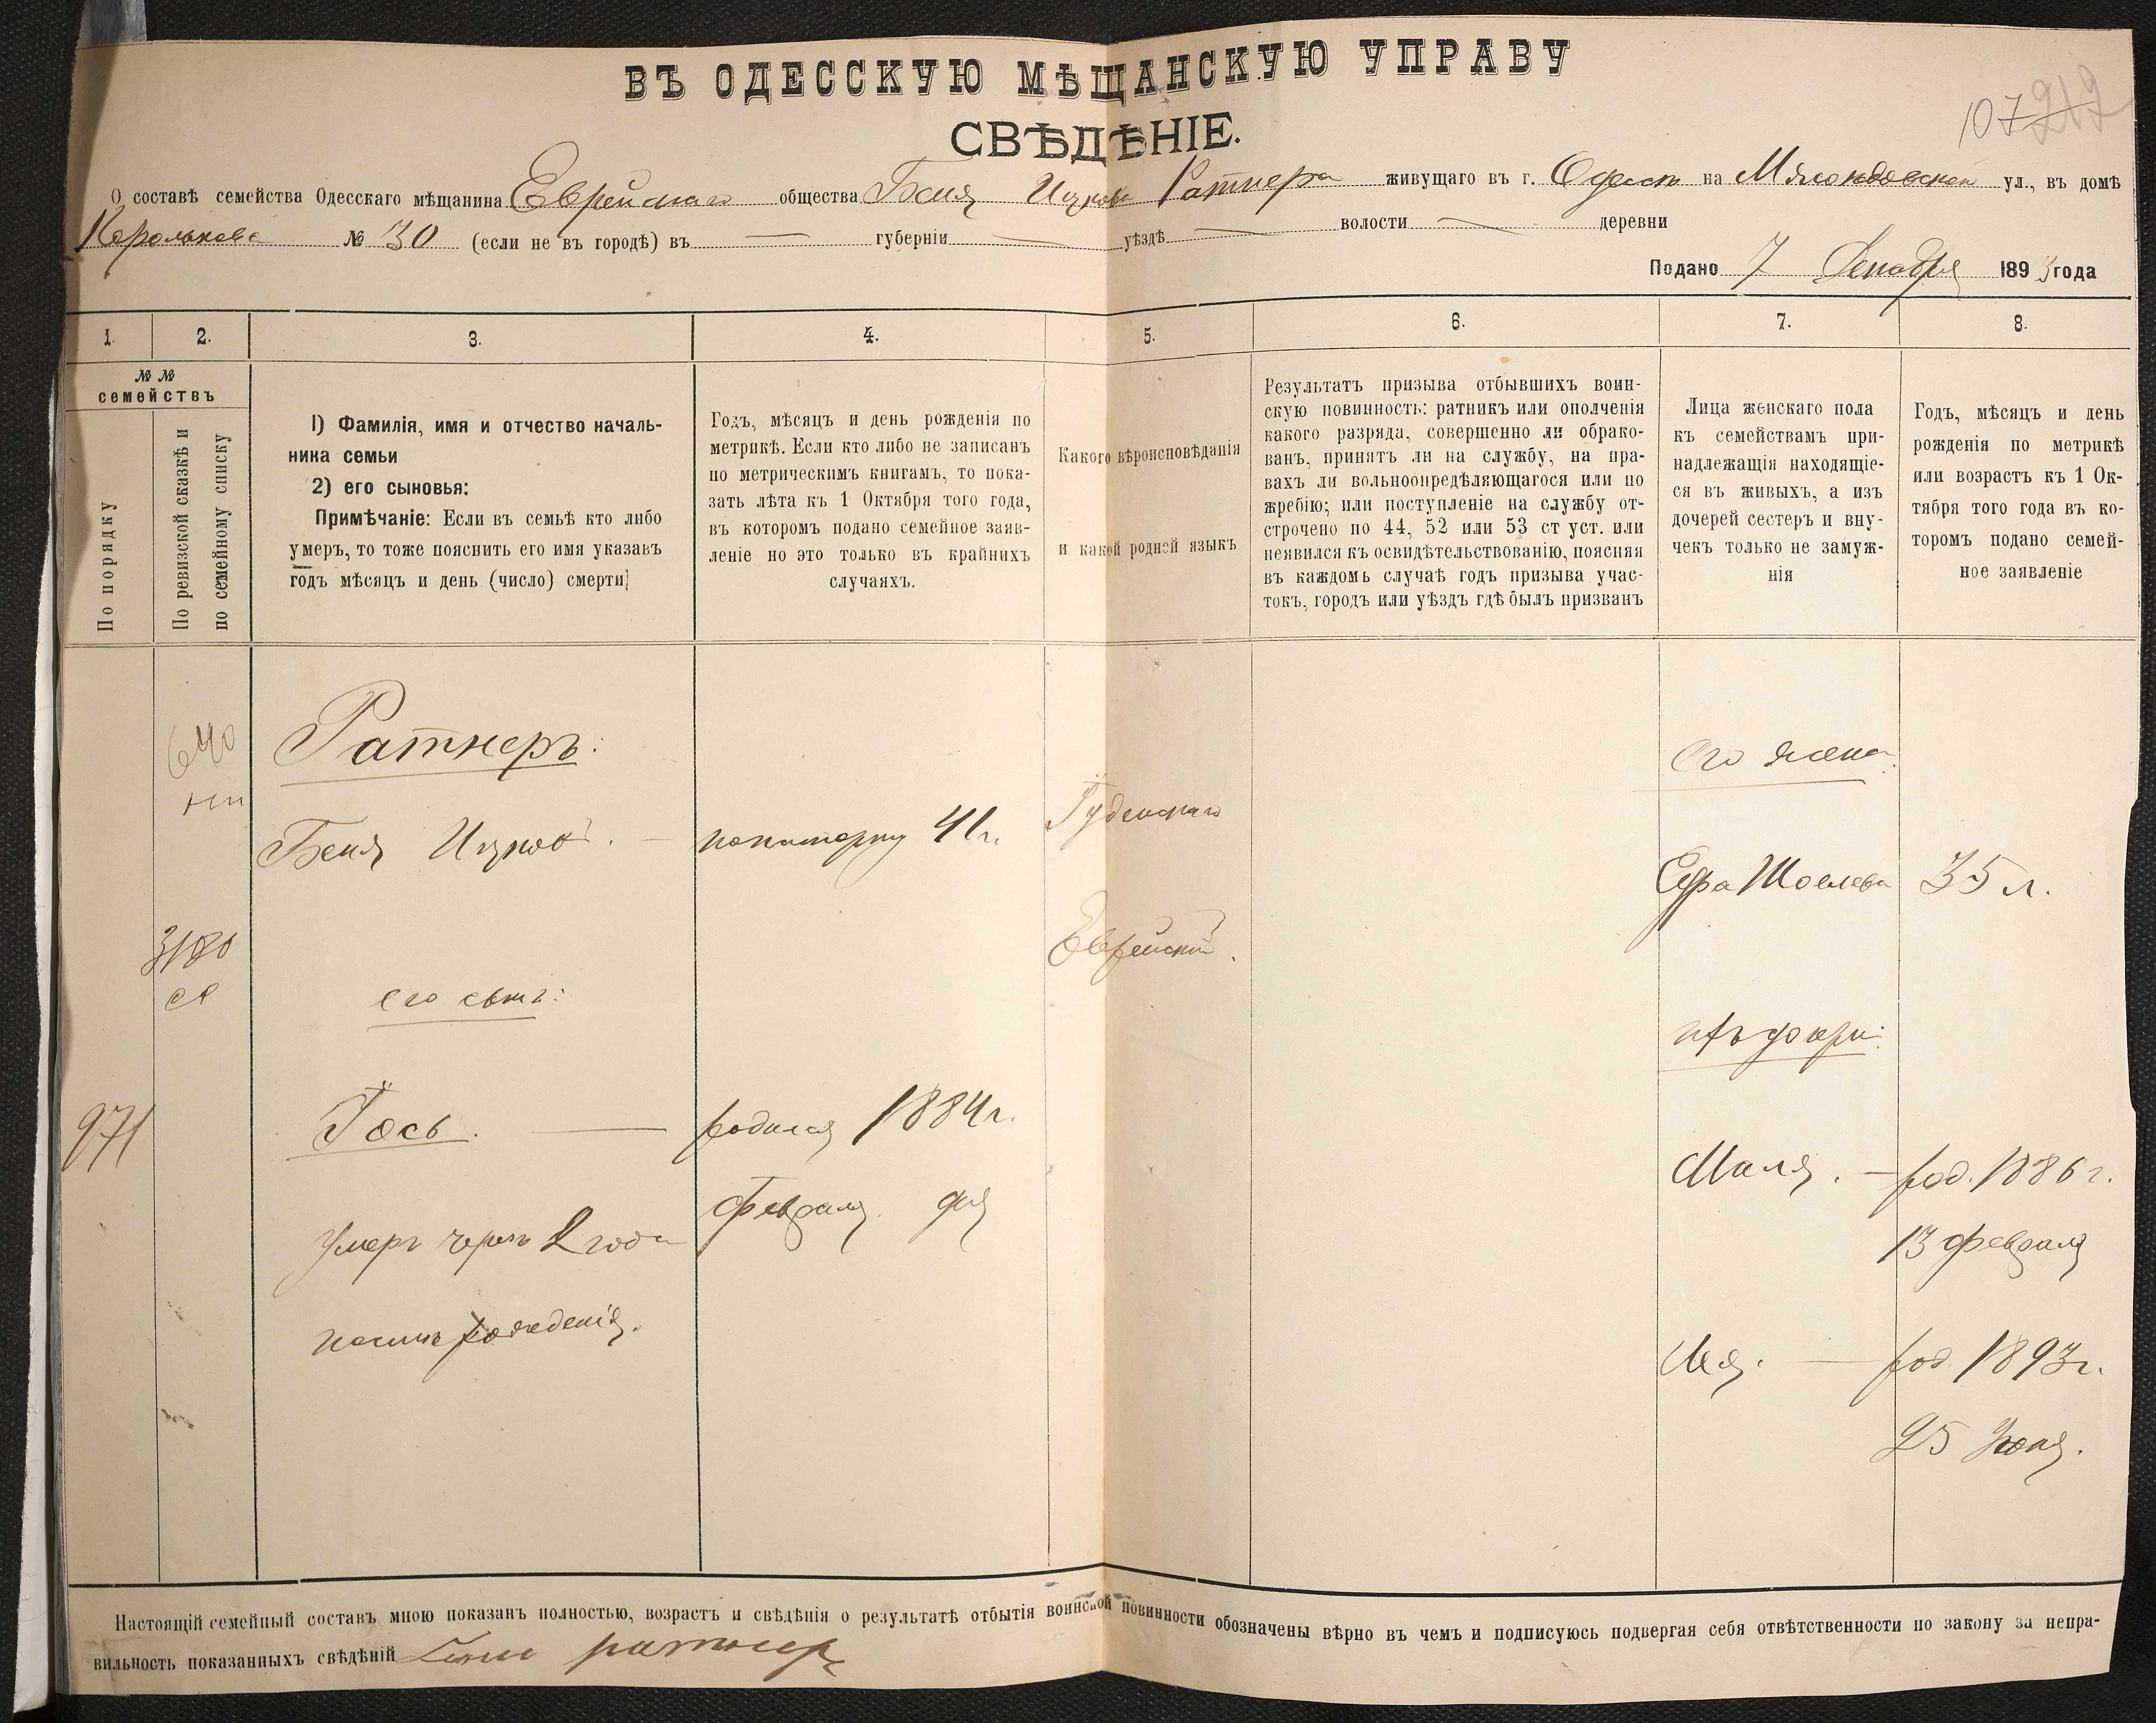 ВЪ ОДЕССКУЮ МѢЩАНСКУЮ УПРАВУ
107 212
СВѢДѢНІЕ.
О составѣ семейства Одесскаго мѣщанина Еврейскаго общества Беня Ицковъ Ратнера живущаго въ г. Одессѣ на Мясоѣдовской ул., въ домѣ
Королькова № 30 (если не въ городѣ) въ — губерніи — уѣздѣ — волости — деревни
Подано 7 Декабря 1893 года
1. 2. 3. 4. 5. 6. 7. 8.
№ № семействъ
По порядку
По ревизской сказкѣ и
по семейному списку
I) Фамилія, имя и отчество началь-
ника семьи
2) его сыновья:
Примѣчаніе: Если въ семьѣ кто либо
умеръ, то тоже пояснить его имя указавъ
годъ мѣсяцъ и день (число) смерти;
Годъ, мѣсяцъ и день рожденія по
метрикѣ. Если кто либо не записанъ
по метрическимъ книгамъ, то пока-
зать лѣта къ 1 Октября того года,
въ котором подано семейное заяв-
леніе но это только въ крайнихъ
случаяхъ.
Какого вѣроисповѣданія
и какой родной языкъ
Результатъ призыва отбывшихъ воин-
скую повинность: ратникъ или ополченія
какого разряда, совершенно ли обрако-
ванъ, принятъ ли на службу, на пра-
вахъ ли вольноопредѣляющагося или по
жребію; или поступленіе на службу от-
строчено по 44, 52 или 53 ст уст. или
неявился къ освидѣтельствованію, поясняя
въ каждомъ случаѣ годъ призыва учас-
токъ, городъ или уѣздъ гдѣ былъ призванъ
Лица женскаго пола
къ семействамъ при-
надлежащія находящіе-
ся въ живыхъ, а изъ
дочерей сестеръ и вну-
чекъ только не замуж-
нія
Годъ, мѣсяцъ и день
рожденія по метрикѣ
или возрастъ къ 1 Ок-
тября того года въ ко-
торомъ подано семей-
ное заявленіе
640
Ратнеръ:
его жена:
Беня Ицковъ. — 41 г. Іудейскаго
Сура Шоелева 35 л.
3180
Еврейскій.
его сынъ:
ихъ дочери:
971
Іось. — родился 1884 г.
Февраля дня
Маля. — род. 1886 г.
13 февраля
умеръ черезъ 2 года
послѣ рожденія.
Лея. — род. 1893 г.
25 Іюня.
Настоящій семейный составъ мною показанъ полностью, возрастъ и свѣдѣнія о результатѣ отбытія воинской повинности обозначены вѣрно въ чемъ и подписуюсь подвергая себя отвѣтственности по закону за непра-
вильность показанныхъ свѣдѣній Бени ратнер